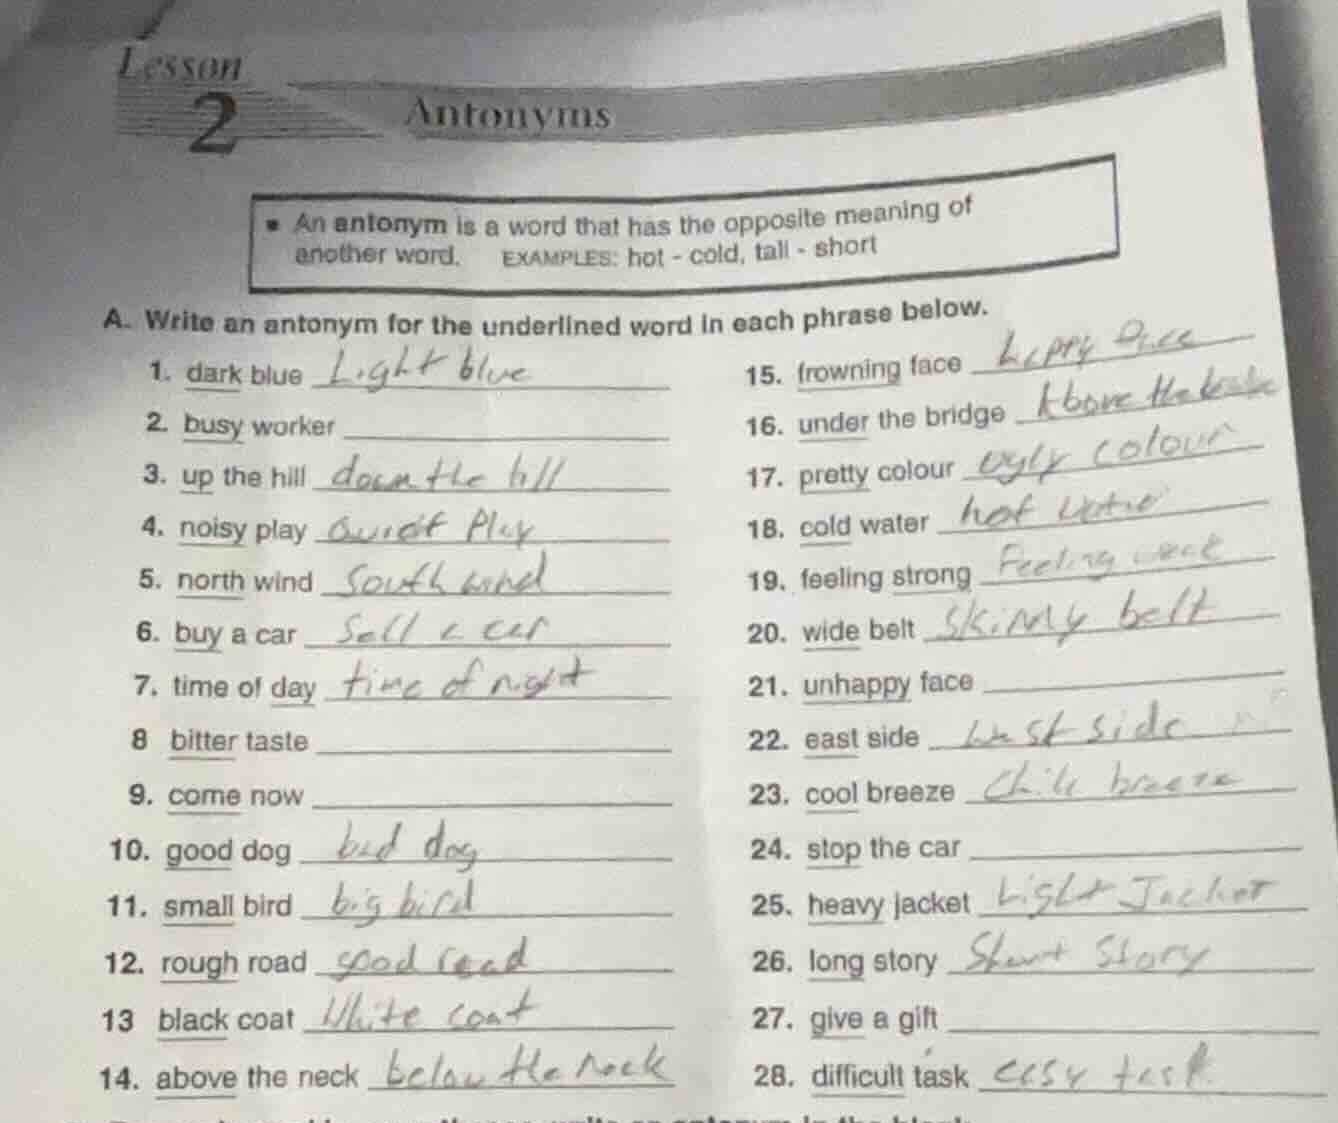 Lesson
2
Antonyms
▪ An antonym is a word that has the opposite meaning of
another word. EXAMPLES: hot - cold, tall - short
A. Write an antonym for the underlined word in each phrase below.
1. dark blue Light blue
2. busy worker
3. up the hill down the hill
4. noisy play Quiet Play
5. north wind South wind
6. buy a car Sell a car
7. time of day time of night
8 bitter taste
9. come now
10. good dog bad dog
11. small bird big bird
12. rough road good road
13 black coat White coat
14. above the neck below the neck
15. frowning face happy face
16. under the bridge Above the
17. pretty colour ugly colour
18. cold water hot water
19. feeling strong Feeling weak
20. wide belt Skinny belt
21. unhappy face
22. east side west side
23. cool breeze Chill breeze
24. stop the car
25. heavy jacket Light Jacket
26. long story Short Story
27. give a gift
28. difficult task easy task
an antonym in the blank